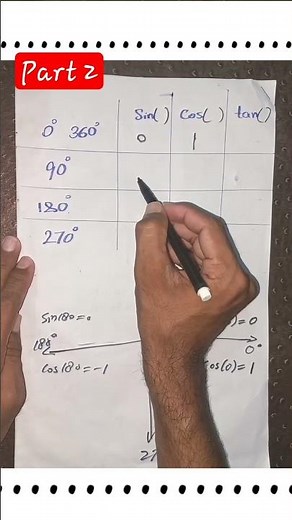 Part 2
Sin( ) Cos( ) tan( )
0° 360° 0 1
90°
180°
270°
Sin180=0 )=0
180° 0°
Cos180=-1 Cos(0)=1